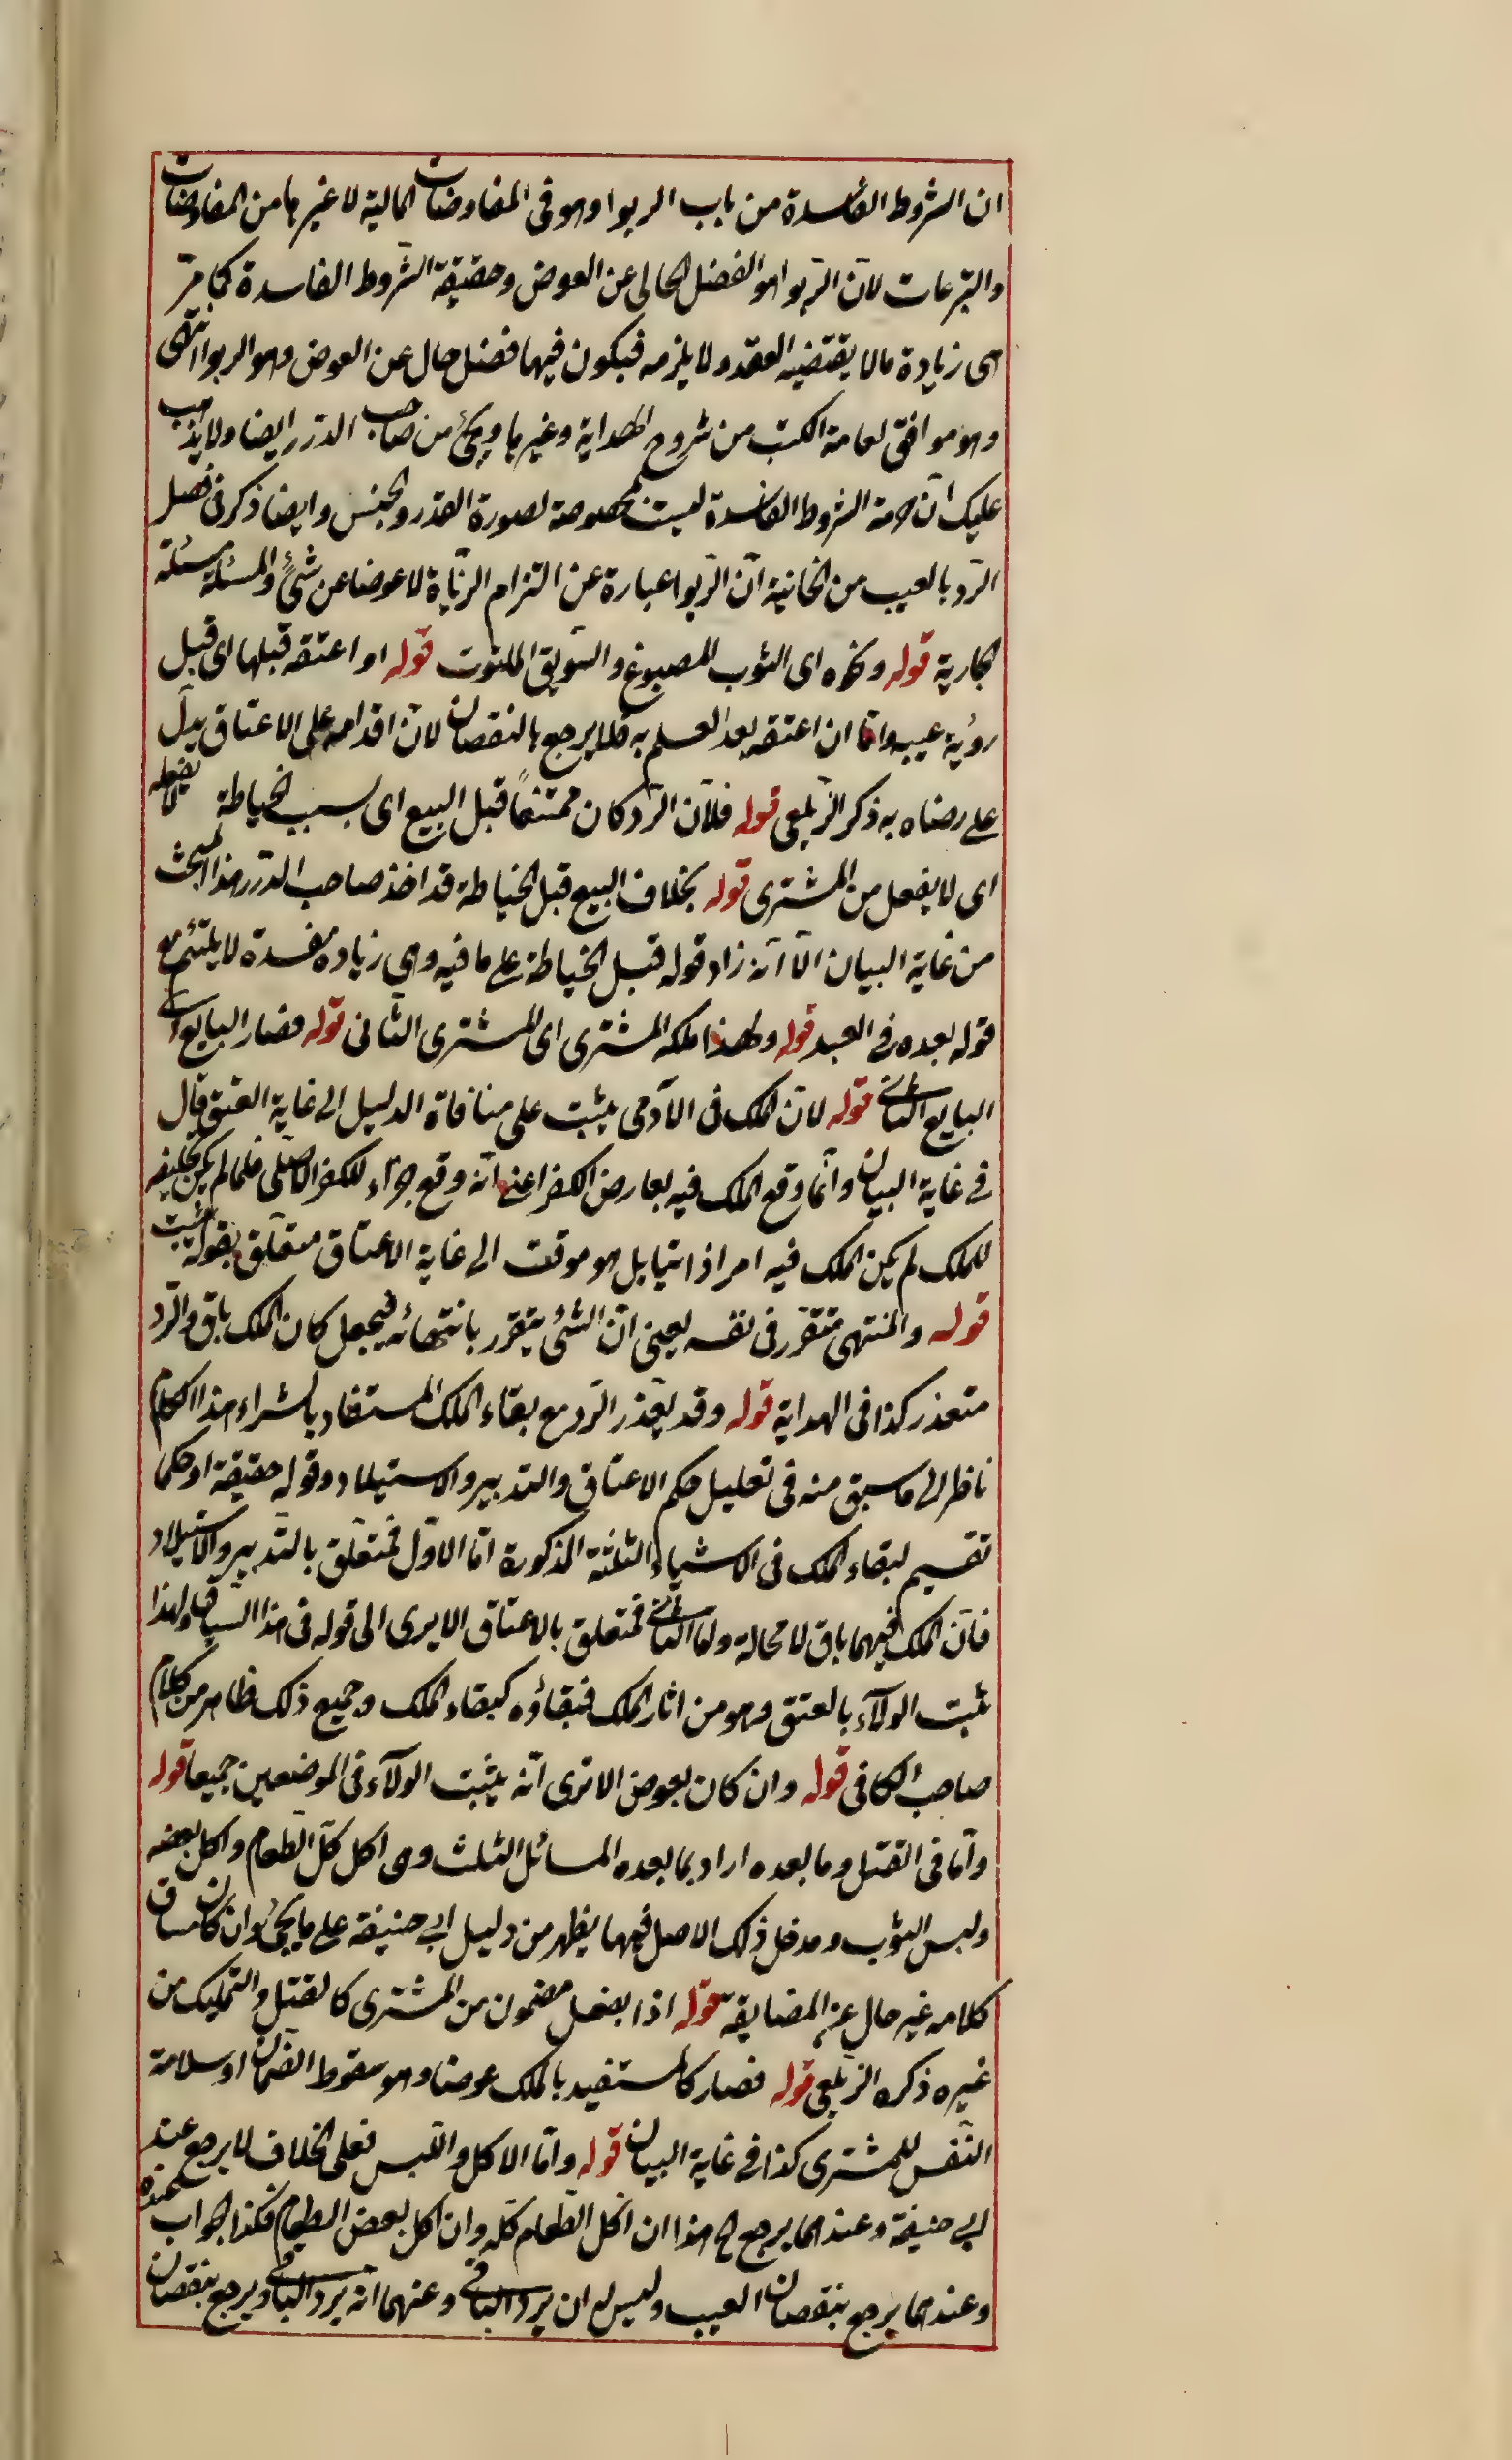 ان الشروط الفاسدة من باب الربوا وهو فى المعاوضات المالية لا غيرها من المعاوضات
والتبرعات لانّ الربوا هو الفضل الخالى عن العوض وحقيقة الشروط الفاسدة كما مرّ
هى زيادة مالا يقتضيه العقد ولا يلزمه فيكون فيها فضل خال عن العوض وهو الربوا انتهى
وهو موافق لعامة الكتب من شروح الهداية وغيرها ويجئ من صاحب الدرر ايضا ولا يذهب
عليك انّ حرمة الشروط الفاسدة ليست مخصوصة لصورة القدر والجنس وايضا ذكر فى فصل
الردّ بالعيب من الخانية انّ الربوا عبارة عن التزام الزيادة لا عوضا عن شئ والمسئلة مسئلة
الجارية قوله ونحوه اى الثوب المصبوغ والسويق الملتوت قوله او اعتقه قبلها اى قبل
رؤية عيبه وامّا ان اعتقه بعد العلم به فلا يرجع بالنقصان لانّ اقدامه على الاعتاق يدلّ
على رضاه به ذكر الزيلعى قوله فلانّ الردّ كان ممتنعاً قبل البيع اى بسبب الخياطة لا بفعله
اى لا بفعل من المشترى قوله بخلاف البيع قبل الخياطة قد اخذ صاحب الدرر هذا المبحث
من غاية البيان الّا انّه زاد قوله قبل الخياطة على ما فيه وهى زيادة مفسدة لا يلتئم مع
قوله بعده فى العبد قوله ولهذا ملكه المشترى اى المشترى الثانى قوله فصار البايع اى
البايع الثانى قوله لانّ الملك فى الآدمى يثبت على منافاة الدليل الى غاية العتق قال
فى غاية البيان وانّما وقع الملك فيه بعارض الكفر اعنى انّه وقع جزاء للكفر الاصلى فلما لم يكن تخليفه
للملك لم يكن الملك فيه امرا ذاتيا بل هو موقت الى غاية الاعتاق متعلّق بقوله يثبت
قوله والمنتهى متقرّر فى نفسه يعنى انّ الشئ يتقرر بانتهائه فيجعل كان الملك باق والردّ
متعذر كذا فى الهداية قوله وقد يتعذر الرد مع بقاء الملك المستفاد بالشراء هذا الكلام
ناظر الى ما سبق منه فى تعليل حكم الاعتاق والتدبير والاستيلاد وقوله حقيقة او حكما
تقسيم لبقاء الملك فى الاشياء الثلثة المذكورة امّا الاوّل فمتعلّق بالتدبير والاستيلاد
فانّ الملك فيهما باق لا محالة واما الثانى فمتعلق بالاعتاق الا يرى الى قوله فى هذا السياق ولهذا
يثبت الولآء بالعتق وهو من اثار الملك فبقاؤه كبقاء الملك وجميع ذلك ظاهر من كلام
صاحب الكافى قوله وان كان بعوض الا ترى انّه يثبت الولآء فى الموضعين جميعا قوله
وامّا فى القتل وما بعده اراد بما بعده المسائل الثلث وهى اكل كلّ الطعام واكل بعضه
ولبس الثوب ومدخل ذلك الاصل فيهما يظهر من دليل ابى حنيفة على ما يجئ وان كان مساق
كلامه غير خال عن المضايقة قوله اذا بفعل مضمون من المشترى كالقتل والتمليك من
غيره ذكره الزيلعى قوله فصار كالمستفيد بالملك عوضا وهو سقوط الضمان او سلامة
النفس للمشترى كذا فى غاية البيان قوله وامّا الاكل واللّبس فعلى الخلاف لا يرجع عند
ابى حنيفة وعندهما يرجع ح هذا ان اكل الطعام كلّه وان اكل بعض الطعام فكذا الجواب عنده
وعندهما يرجع بنقصان العيب وليس له ان يردّ الباقى وعنهما انه يردّ الباقى ويرجع بنقصان